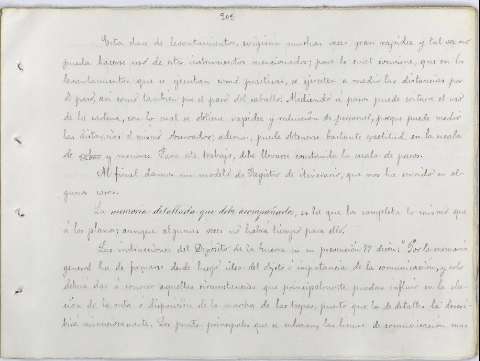 202
Esta clase de levantamientos, exigirán muchas veces gran rapidez y tal vez no
pueda hacerse uso de otros instrumentos mencionados; para lo cual conviene, que en los
levantamientos que se ejecutan como prácticas, se ejerciten a medir las distancias por
el paso, así como también por el paso del caballo. Midiendo a pasos puede evitarse el uso
de la cadena, con lo cual se obtiene rapidez y reducción de personal, porque puede medir
las distancias el mismo observador; además, puede obtenerse bastante exactitud en la escala
de y menores. Para este trabajo, debe llevarse construida la escala de pasos.
Al final damos un modelo de Registro de itinerario, que nos ha servido en al-
gunos casos.
La memoria detallada que debe acompañarle, es la que los completa lo mismo que
a los planos; aunque algunas veces no habrá tiempo para ello.
Las instrucciones del Depósito de la Guerra en su prevención 27 dicen: "Por la memoria
general ha de formarse desde luego idea del objeto é importancia de la comunicación, y solo
deben dar á conocer aquellas circunstancias que principalmente puedan influir en la elec-
ción de la ruta ó disposición de la marcha de las tropas, puesto que los de detalle la descri-
birá minuciosamente. Los puntos principales que se enlazan, las líneas de comunicación mas